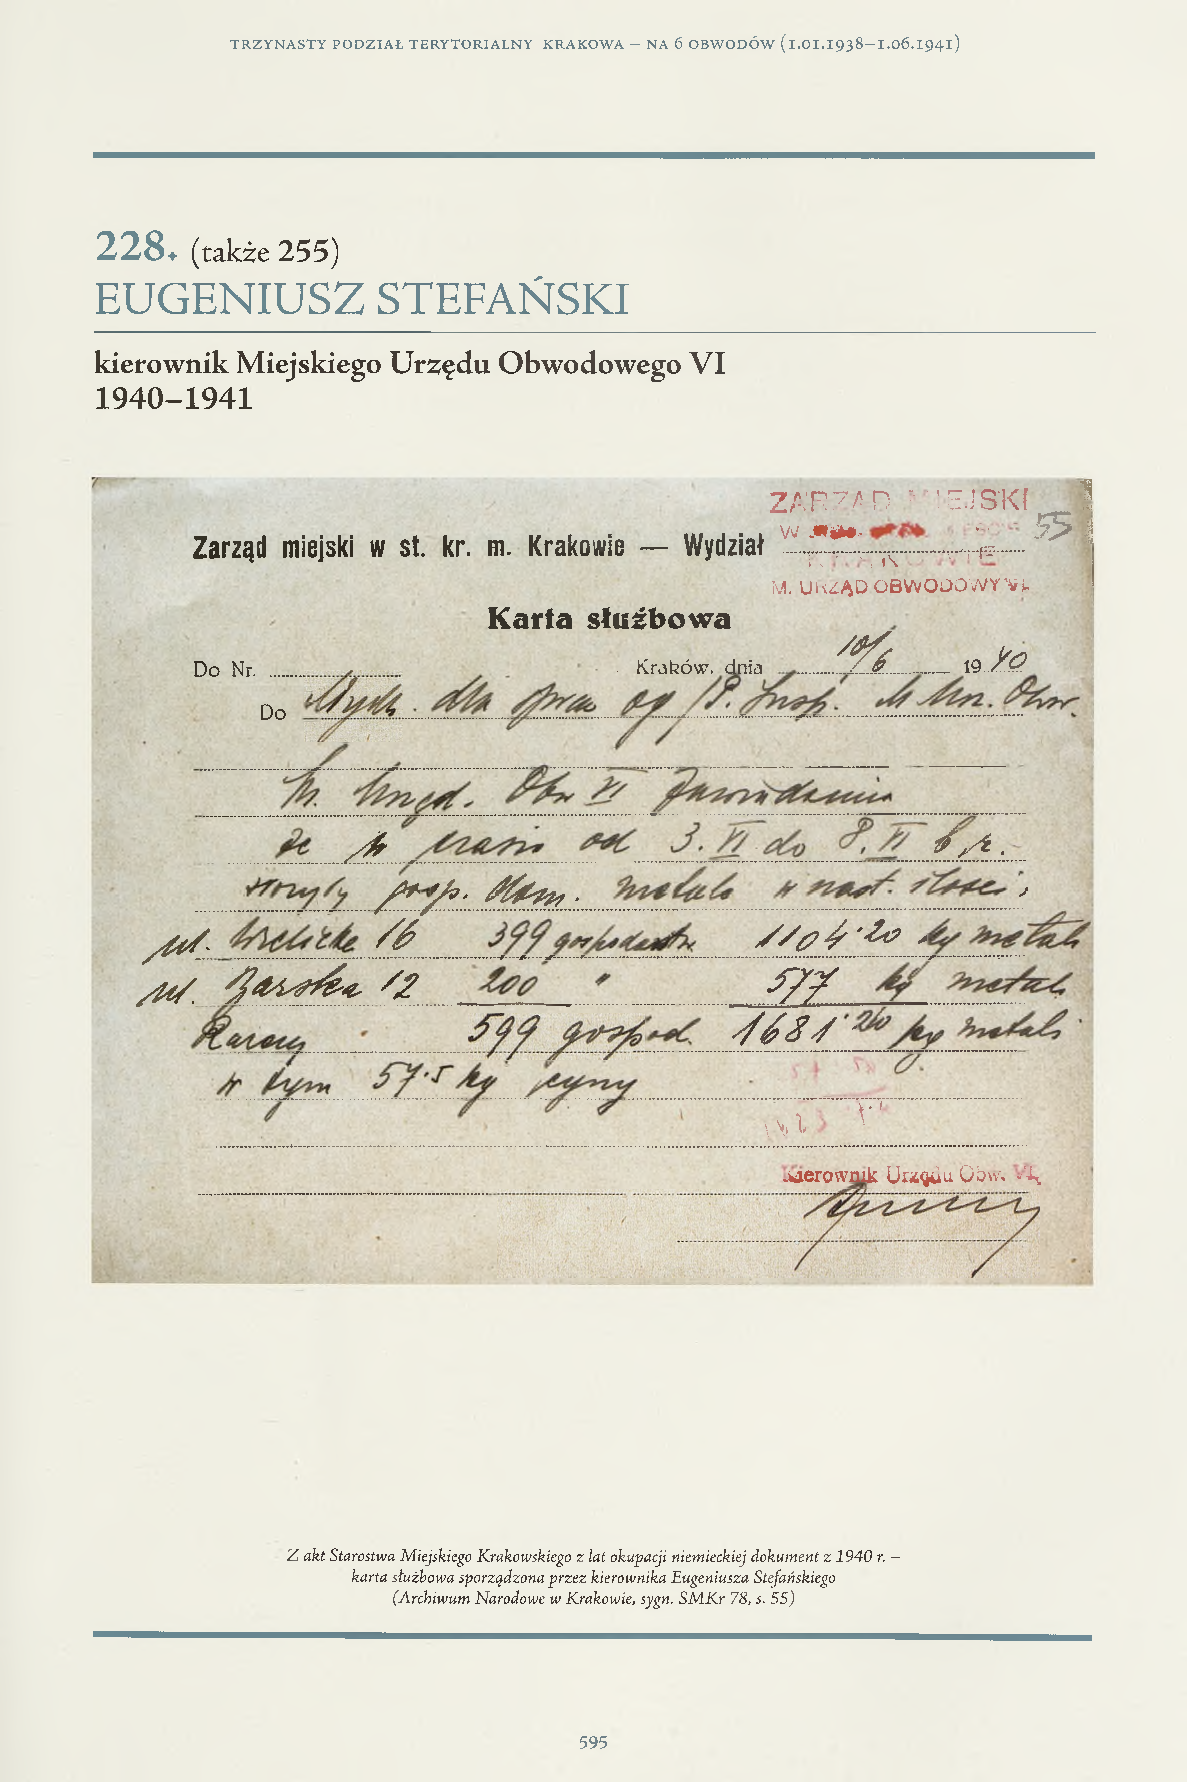 TRZYNASTY PODZIAŁ TERYTORIALNY KRAKOWA – NA 6 OBWODÓW (1.01.1938–1.06.1941)
228. (także 255)
EUGENIUSZ STEFAŃSKI
kierownik Miejskiego Urzędu Obwodowego VI
1940–1941
ZARZĄD MIEJSKI
W
55
Zarząd miejski w st. kr. m. Krakowie — Wydział
KRAKOWIE
M. URZĄD OBWODOWY VI.
Karta służbowa
Do Nr. Kraków, dnia 10/6 1940
Do Wydz. dla spraw og /P. Insp. M Urz. Obw.
M. Urząd. Obw VI Zawiadamia
że w czasie od 3. VI do 8. VI b.r.
gosp. dom. metale w nast. ilości:
ul. Wielicka 16 399 gospodarstw 1104·20 kg metali
ul. Zarska 12 200 " 577 kg metali
Razem 599 gospod. 1681·20 kg metali
w tym 57·5 kg cyny
Kierownik Urzędu Obw. VI,
Z akt Starostwa Miejskiego Krakowskiego z lat okupacji niemieckiej dokument z 1940 r. –
karta służbowa sporządzona przez kierownika Eugeniusza Stefańskiego
(Archiwum Narodowe w Krakowie, sygn. SMKr 78, s. 55)
595